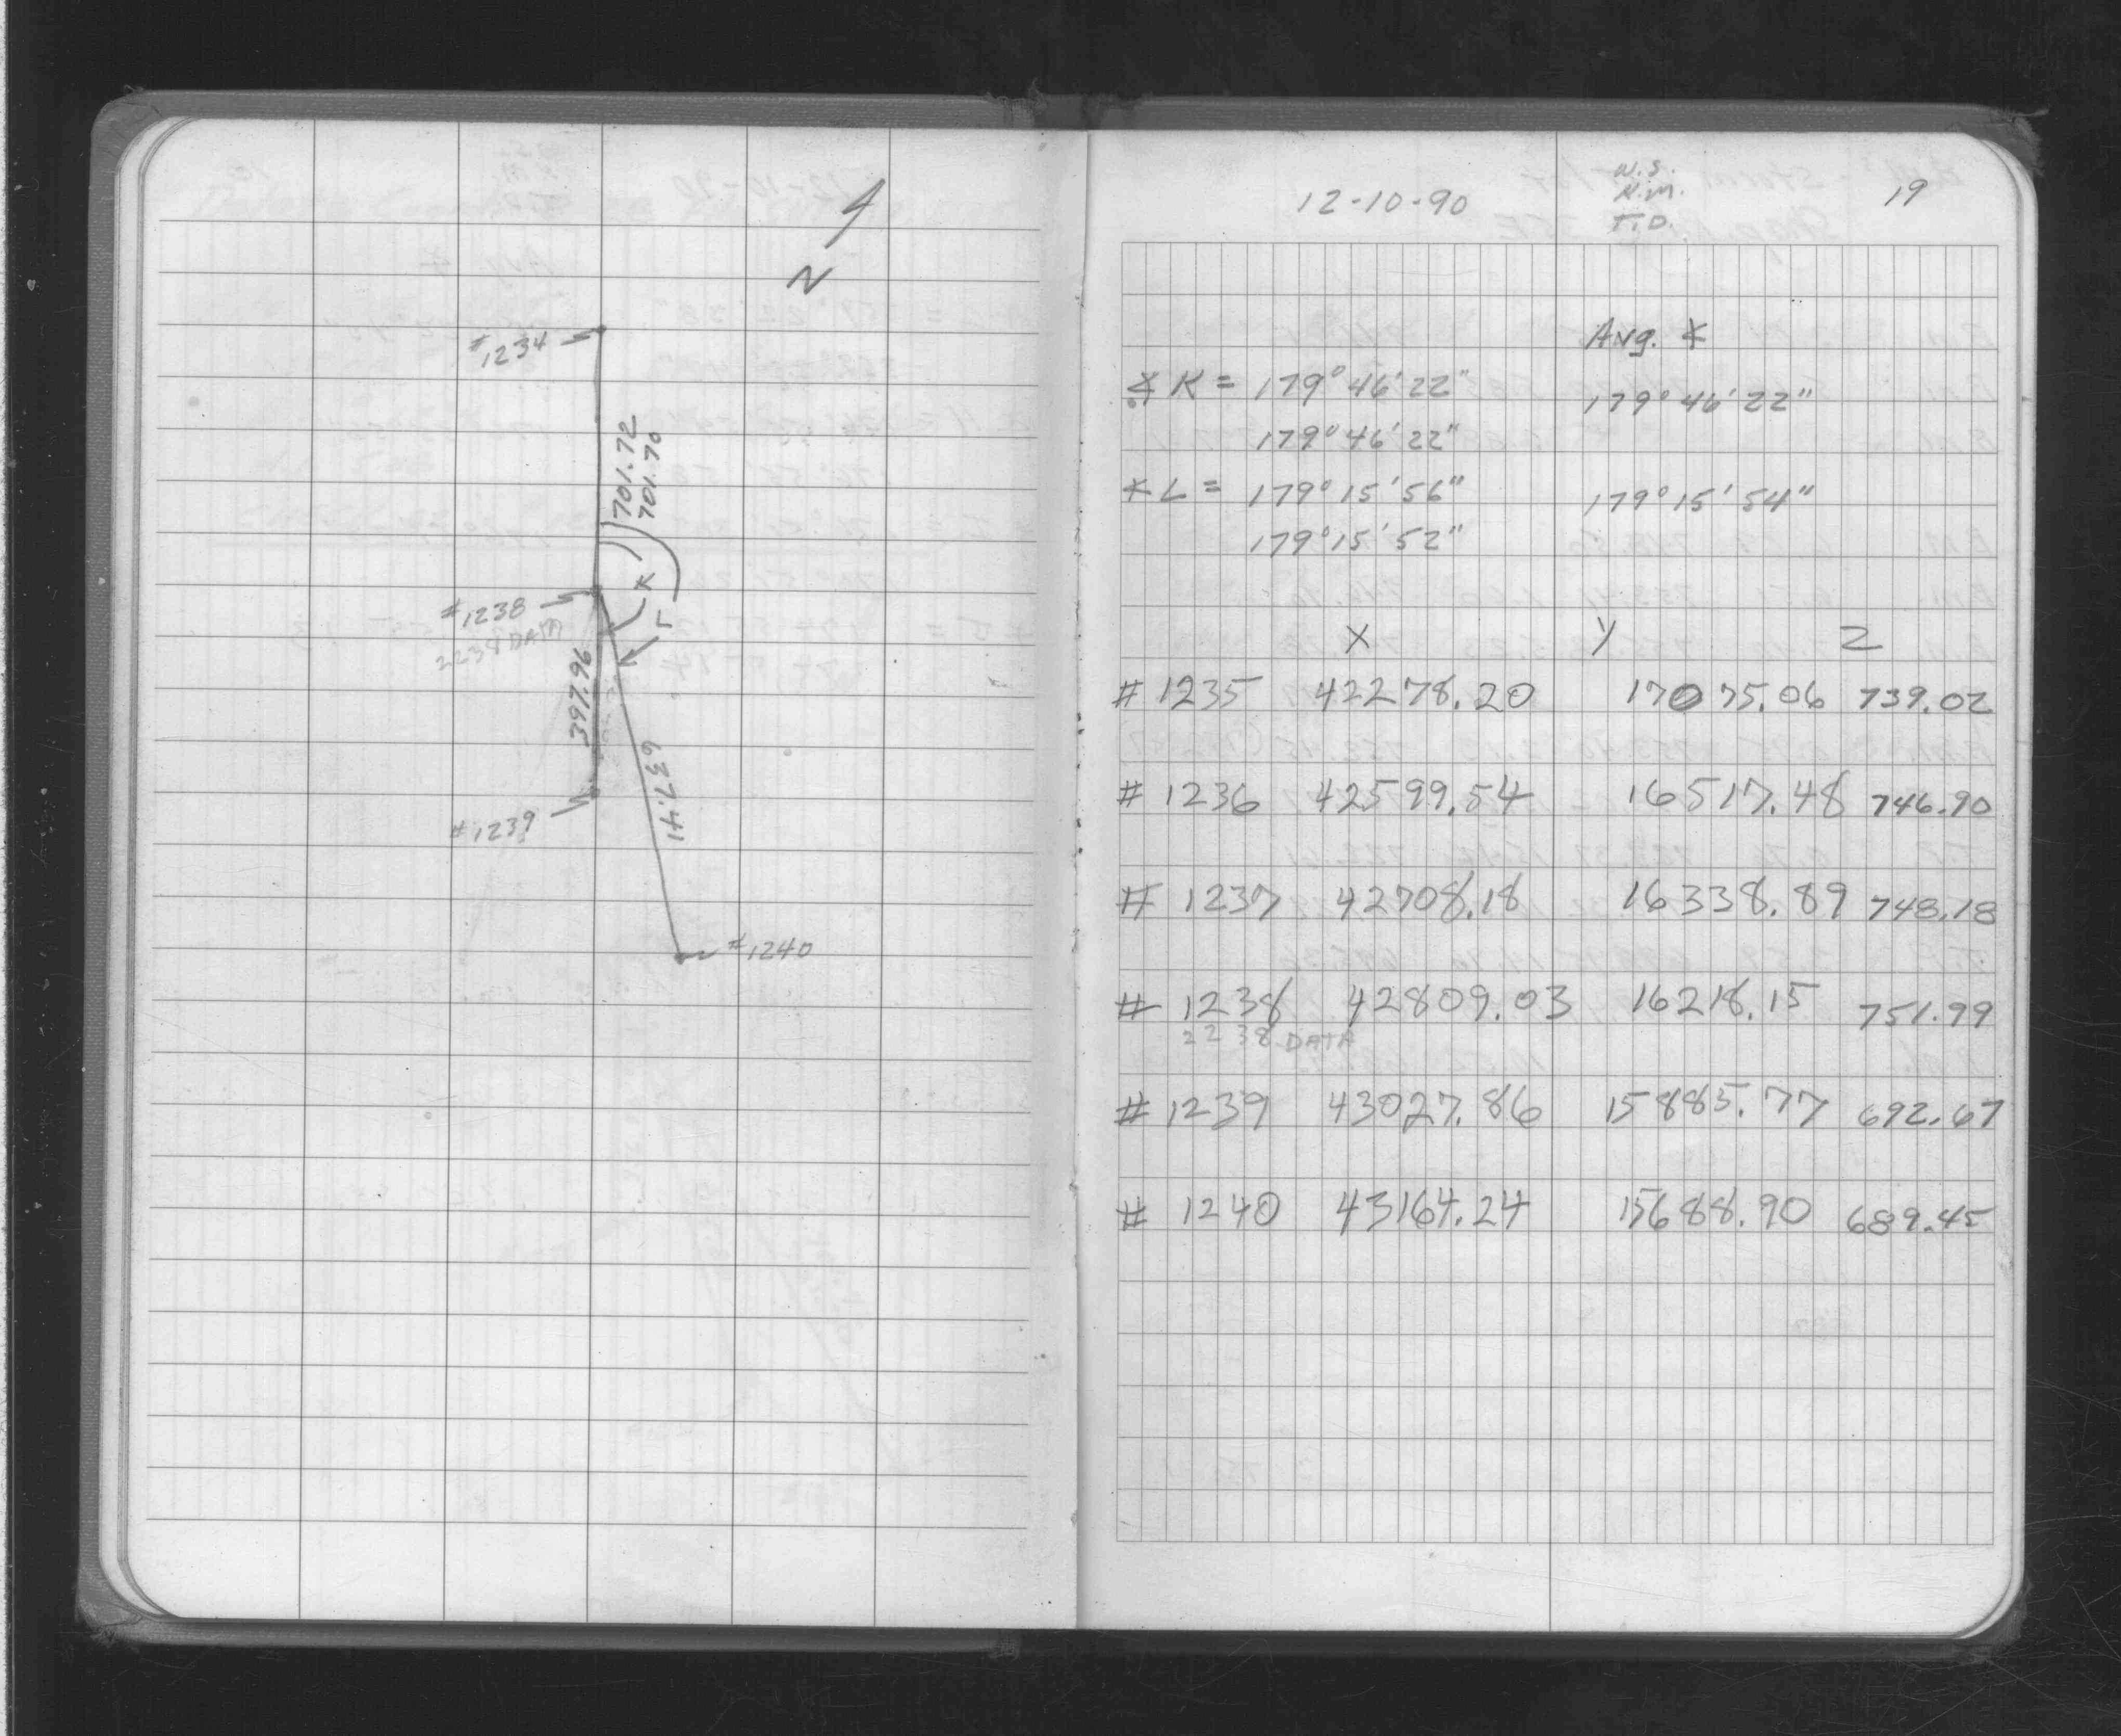 N
#1234
701.72
701.70
K
L
#1238
2238 DATA
397.96
637.41
#1239
#1240
12-10-90
W.S.
K.M.
T.D.
19
Avg. ∡
∡ K = 179° 46' 22" 179° 46' 22"
179° 46' 22"
∡ L = 179° 15' 56" 179° 15' 54"
179° 15' 52"
X Y Z
# 1235 42278.20 17075.06 739.02
# 1236 42599.54 16517.48 746.90
# 1237 42708.18 16338.89 748.18
# 1238 42809.03 16218.15 751.99
2238 DATA
# 1239 43027.86 15885.77 692.67
# 1240 43164.24 15688.90 689.45